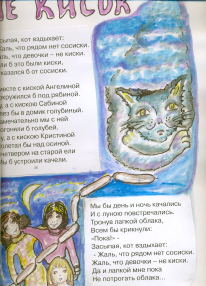 НЕ КИСОК
Засыпая, кот вздыхает:
Жаль, что рядом нет сосиски.
Жаль, что девочки – не киски.
Если б это были киски,
Отказался б от сосиски.
Вместе с киской Ангелиной
Покружился б под рябиной.
Ну, а с кискою Сабиной
Влез бы в домик голубиный.
Замечательно мы с ней
Погоняли б голубей.
Ну, а с кискою Кристиной
Полетал бы над осиной.
Вчетвером на старой ели
Мы б устроили качели.
Мы бы день и ночь качались
И с луною повстречались.
Тронув лапкой облака,
Всем бы крикнули:
«Пока!» -
Засыпая, кот вздыхает:
- Жаль, что рядом нет сосиски.
Жаль, что девочки – не киски.
Да и лапкой мне пока
Не потрогать облака...